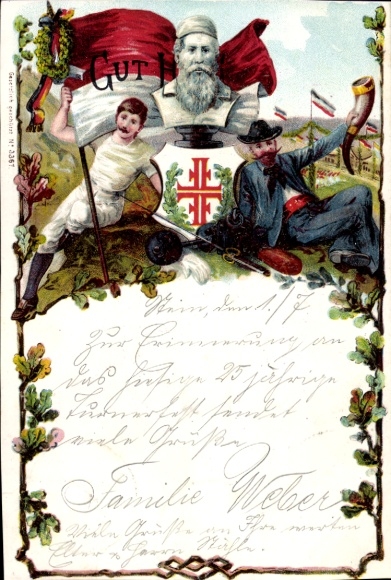 Gesetzlich geschützt Nr. 3367
GUT H
Stein, den 1./7
Zur Erinnerung an
das hiesige 25 jährige
Turnerfest sendet
viele Grüße
Familie Weber
Viele Grüße an Ihre werten
Eltern u. Herrn Stähle.